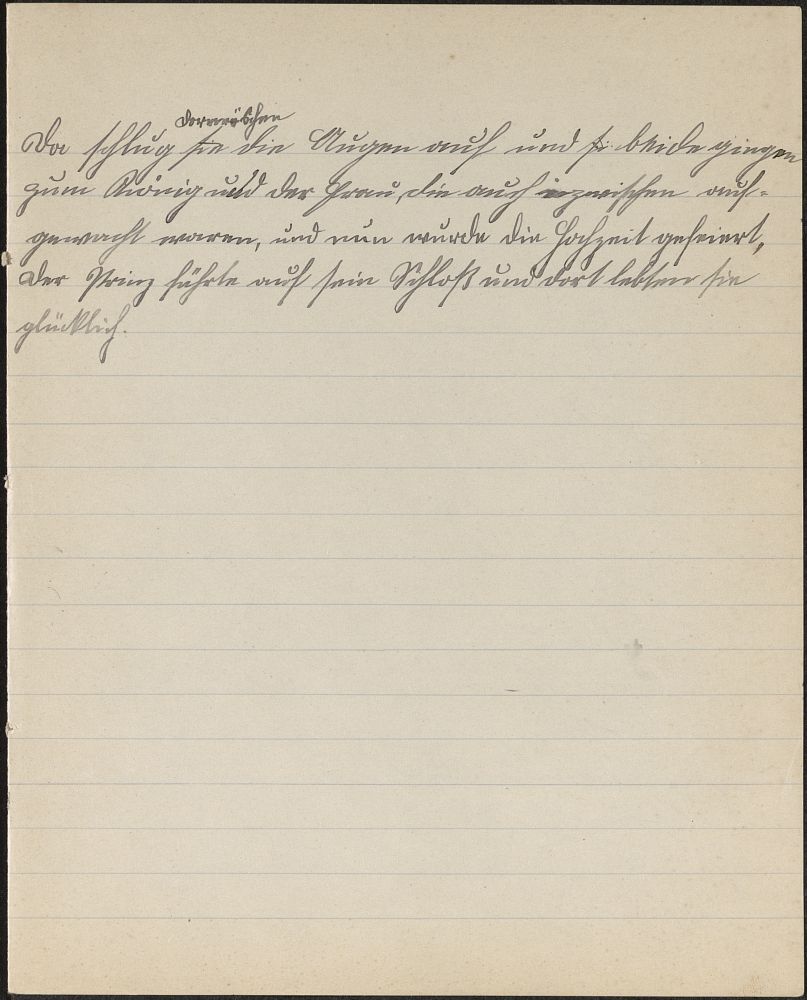 Dornröschen
Da schlug sie die Augen auf und s. beide gingen
zum König und der Frau, die auch inzwischen auf-
gewacht waren, und nun wurde die Hochzeit gefeiert,
der Prinz führte auf sein Schloß und dort lebten sie
glücklich.